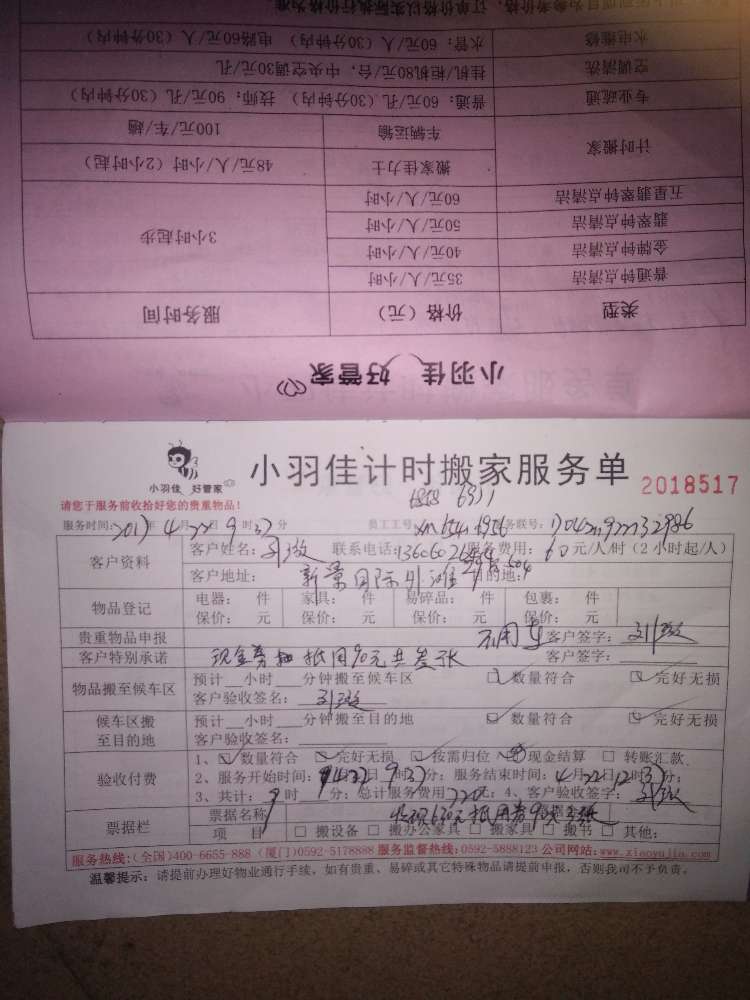 小羽佳 好管家
类型 价格（元） 服务时间
普通钟点清洁 35元/人/小时 3小时起步
金牌钟点清洁 40元/人/小时
翡翠钟点清洁 50元/人/小时
五星翡翠钟点清洁 60元/人/小时
计时搬家 搬家佳力士 48元/人/小时（2小时起）
车辆运输 100元/车/趟
专业疏通 普通：60元/孔（30分钟内） 技师：90元/孔（30分钟内）
空调清洗 挂机/柜机80元/台，中央空调30元/孔
水电维修 水管：60元/人（30分钟内） 电路60元/人（30分钟内）
小羽佳 好管家
小羽佳计时搬家服务单
2018517
6311
请您于服务前收拾好您的贵重物品！
服务时间：2017年4月22日9时33分 员工工号： 服务联号：
客户资料 客户姓名： 联系电话： 服务费用：60元/人/时（2小时起/人）
客户地址：新景国际外滩 目的地：
物品登记 电器： 件 家具： 件 易碎品： 件 包裹： 件
保价： 元 保价： 元 保价： 元 保价： 元
贵重物品申报 不用车 客户签字：
客户特别承诺 抵用90元共叁张 客户签字：
物品搬至候车区 预计__小时__分钟搬至候车区 数量符合 完好无损
客户验收签名：
候车区搬至目的地 预计__小时__分钟搬至目的地 数量符合 完好无损
客户验收签名：
验收付费 1、数量符合 完好无损 按需归位 现金结算 转账汇款
2、服务开始时间：4月22日9时33分；服务结束时间：4月22日12时33分；
3、共计： 时 分；总计服务费用720元；4、客户验收签字：
票据栏 票据名称
项 目 搬设备 搬办公家具 搬家具 搬书 其他：
服务热线：(全国)400-6655-888 (厦门)0592-5178888 服务监督热线：0592-5888123 公司网站：www.xiaoyujia.com
温馨提示：请提前办理好物业通行手续，如有贵重、易碎或其它特殊物品请提前申报，否则我司不予负责。